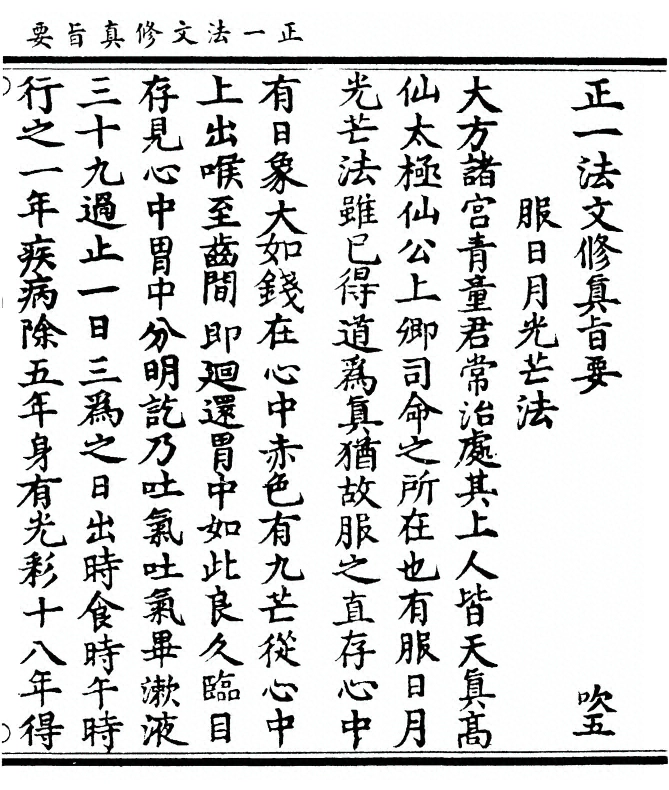 正一法文修真旨要
正一法文修眞旨要 吹五
服日月光芒法
大方諸宮青童君常治處其上人皆天眞髙
仙太極仙公上卿司命之所在也有服日月
光芒法雖巳得道爲眞猶故服之直存心中
有日象大如錢在心中赤色有九芒從心中
上出喉至齒間即廻還胃中如此良久臨目
存見心中胃中分明訖乃吐氣吐氣畢漱液
三十九過止一日三爲之日出時食時午時
行之一年疾病除五年身有光彩十八年得